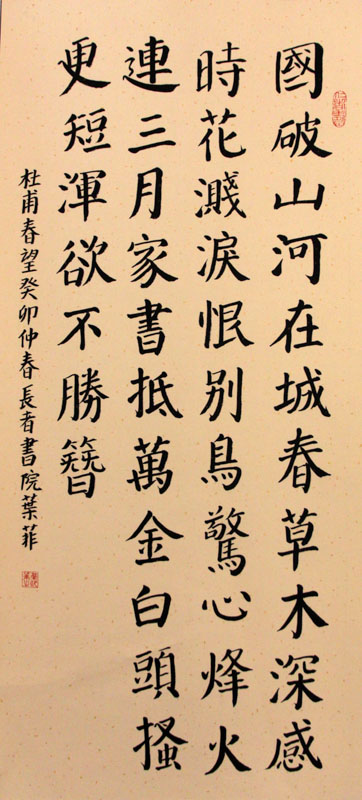 國破山河在城春草木深感
時花濺淚恨別鳥驚心烽火
連三月家書抵萬金白頭搔
更短渾欲不勝簪
杜甫春望癸卯仲春長者書院葉菲